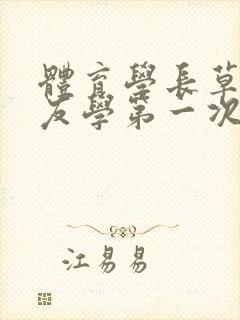 體育學長草
友學第一次
江易易